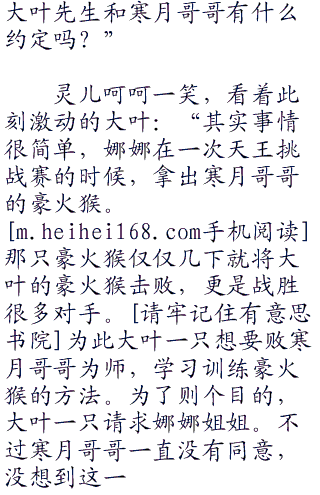 大叶先生和寒月哥哥有什么
约定吗？”
灵儿呵呵一笑，看着此
刻激动的大叶：“其实事情
很简单，娜娜在一次天王挑
战赛的时候，拿出寒月哥哥
的豪火猴。
[m.heihei168.com手机阅读]
那只豪火猴仅仅几下就将大
叶的豪火猴击败，更是战胜
很多对手。[请牢记住有意思
书院]为此大叶一只想要败寒
月哥哥为师，学习训练豪火
猴的方法。为了则个目的，
大叶一只请求娜娜姐姐。不
过寒月哥哥一直没有同意，
没想到这一